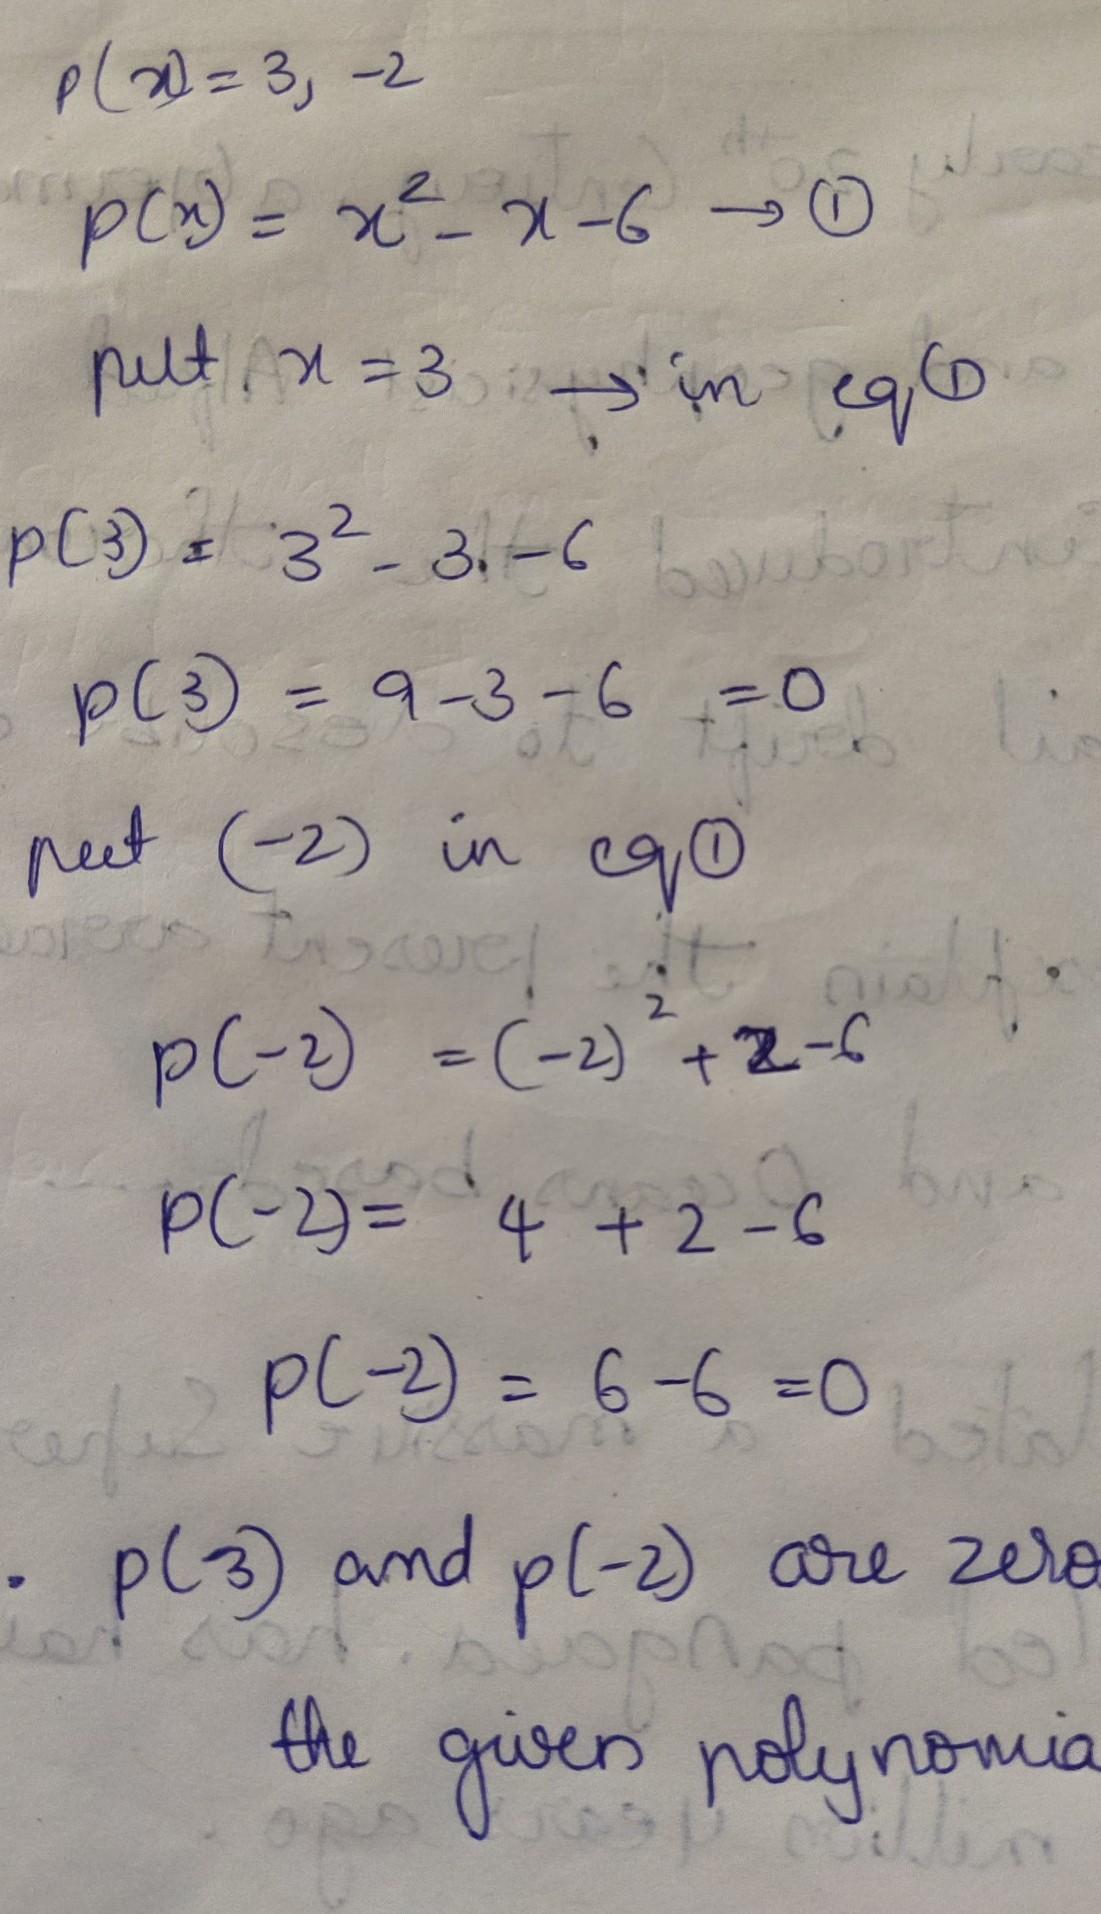 p(x) = 3, -2
p(x) = x² - x - 6 → ①
put x = 3 → in eq ①
p(3) = 3² - 3 - 6
p(3) = 9 - 3 - 6 = 0
put (-2) in eq ①
p(-2) = (-2)² + 2 - 6
p(-2) = 4 + 2 - 6
p(-2) = 6 - 6 = 0
. p(3) and p(-2) are zero
the given polynomia